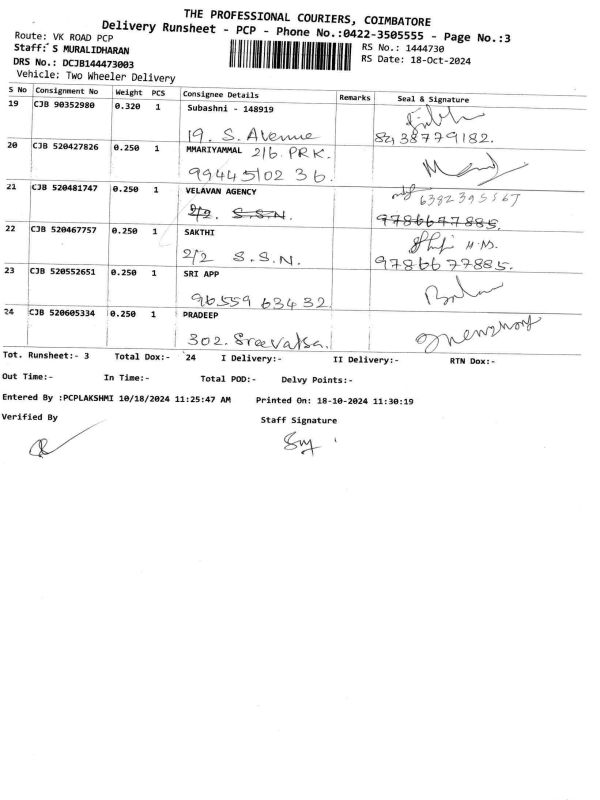 THE PROFESSIONAL COURIERS, COIMBATORE
Delivery Runsheet - PCP - Phone No.:0422-3505555 - Page No.:3
Route: VK ROAD PCP
RS No.: 1444730
Staff: S MURALIDHARAN
RS Date: 18-Oct-2024
DRS No.: DCJB144473003
Vehicle: Two Wheeler Delivery
S No Consignment No Weight PCS Consignee Details Remarks Seal & Signature
19 CJB 90352980 0.320 1 Subashni - 148919
19. S. Avenue 8438779182.
20 CJB 520427826 0.250 1 MMARIYAMMAL 216 PRK.
9944510236.
21 CJB 520481747 0.250 1 VELAVAN AGENCY 6382395567
2/2. S.S.N. 9786677885.
22 CJB 520467757 0.250 1 SAKTHI
2/2 S.S.N. 9786677885.
23 CJB 520552651 0.250 1 SRI APP
9655963432
24 CJB 520605334 0.250 1 PRADEEP
302. Sreevatsa.
Tot. Runsheet:- 3 Total Dox:- 24 I Delivery:- II Delivery:- RTN Dox:-
Out Time:- In Time:- Total POD:- Delvy Points:-
Entered By :PCPLAKSHMI 10/18/2024 11:25:47 AM Printed On: 18-10-2024 11:30:19
Verified By Staff Signature